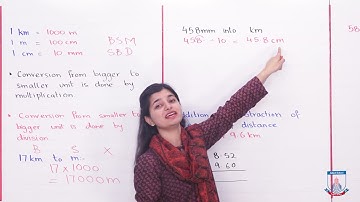 1 km = 1000 m
1 m = 100 cm
1 cm = 10 mm
BSM
SBD
• Conversion from bigger to
smaller unit is done by
multiplication.
• Conversion from smaller to
bigger unit is done by
division.
B S X
17km to m:
17 x 1000
= 17000 m
458mm into km
458 ÷ 10 = 45.8 cm
traction of
distance
6 km
8.52
9.60
58